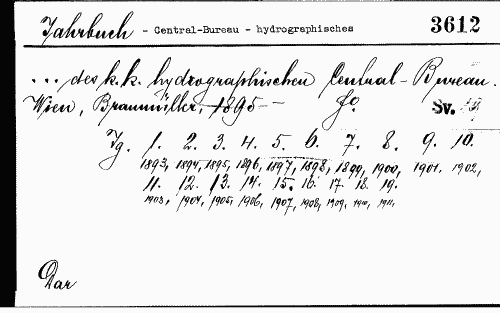 Jahrbuch - Central-Bureau - hydrographisches 3612
... des k.k. hydrographischen Central-Bureau.
Wien, Braumüller, 1895 - fo. Sv.
Jg. 1. 2. 3. 4. 5. 6. 7. 8. 9. 10.
1893, 1894, 1895, 1896, 1897, 1898, 1899, 1900, 1901, 1902,
11. 12. 13. 14. 15. 16. 17. 18. 19.
1903, 1904, 1905, 1906, 1907, 1908, 1909, 1910, 1911,
Dar